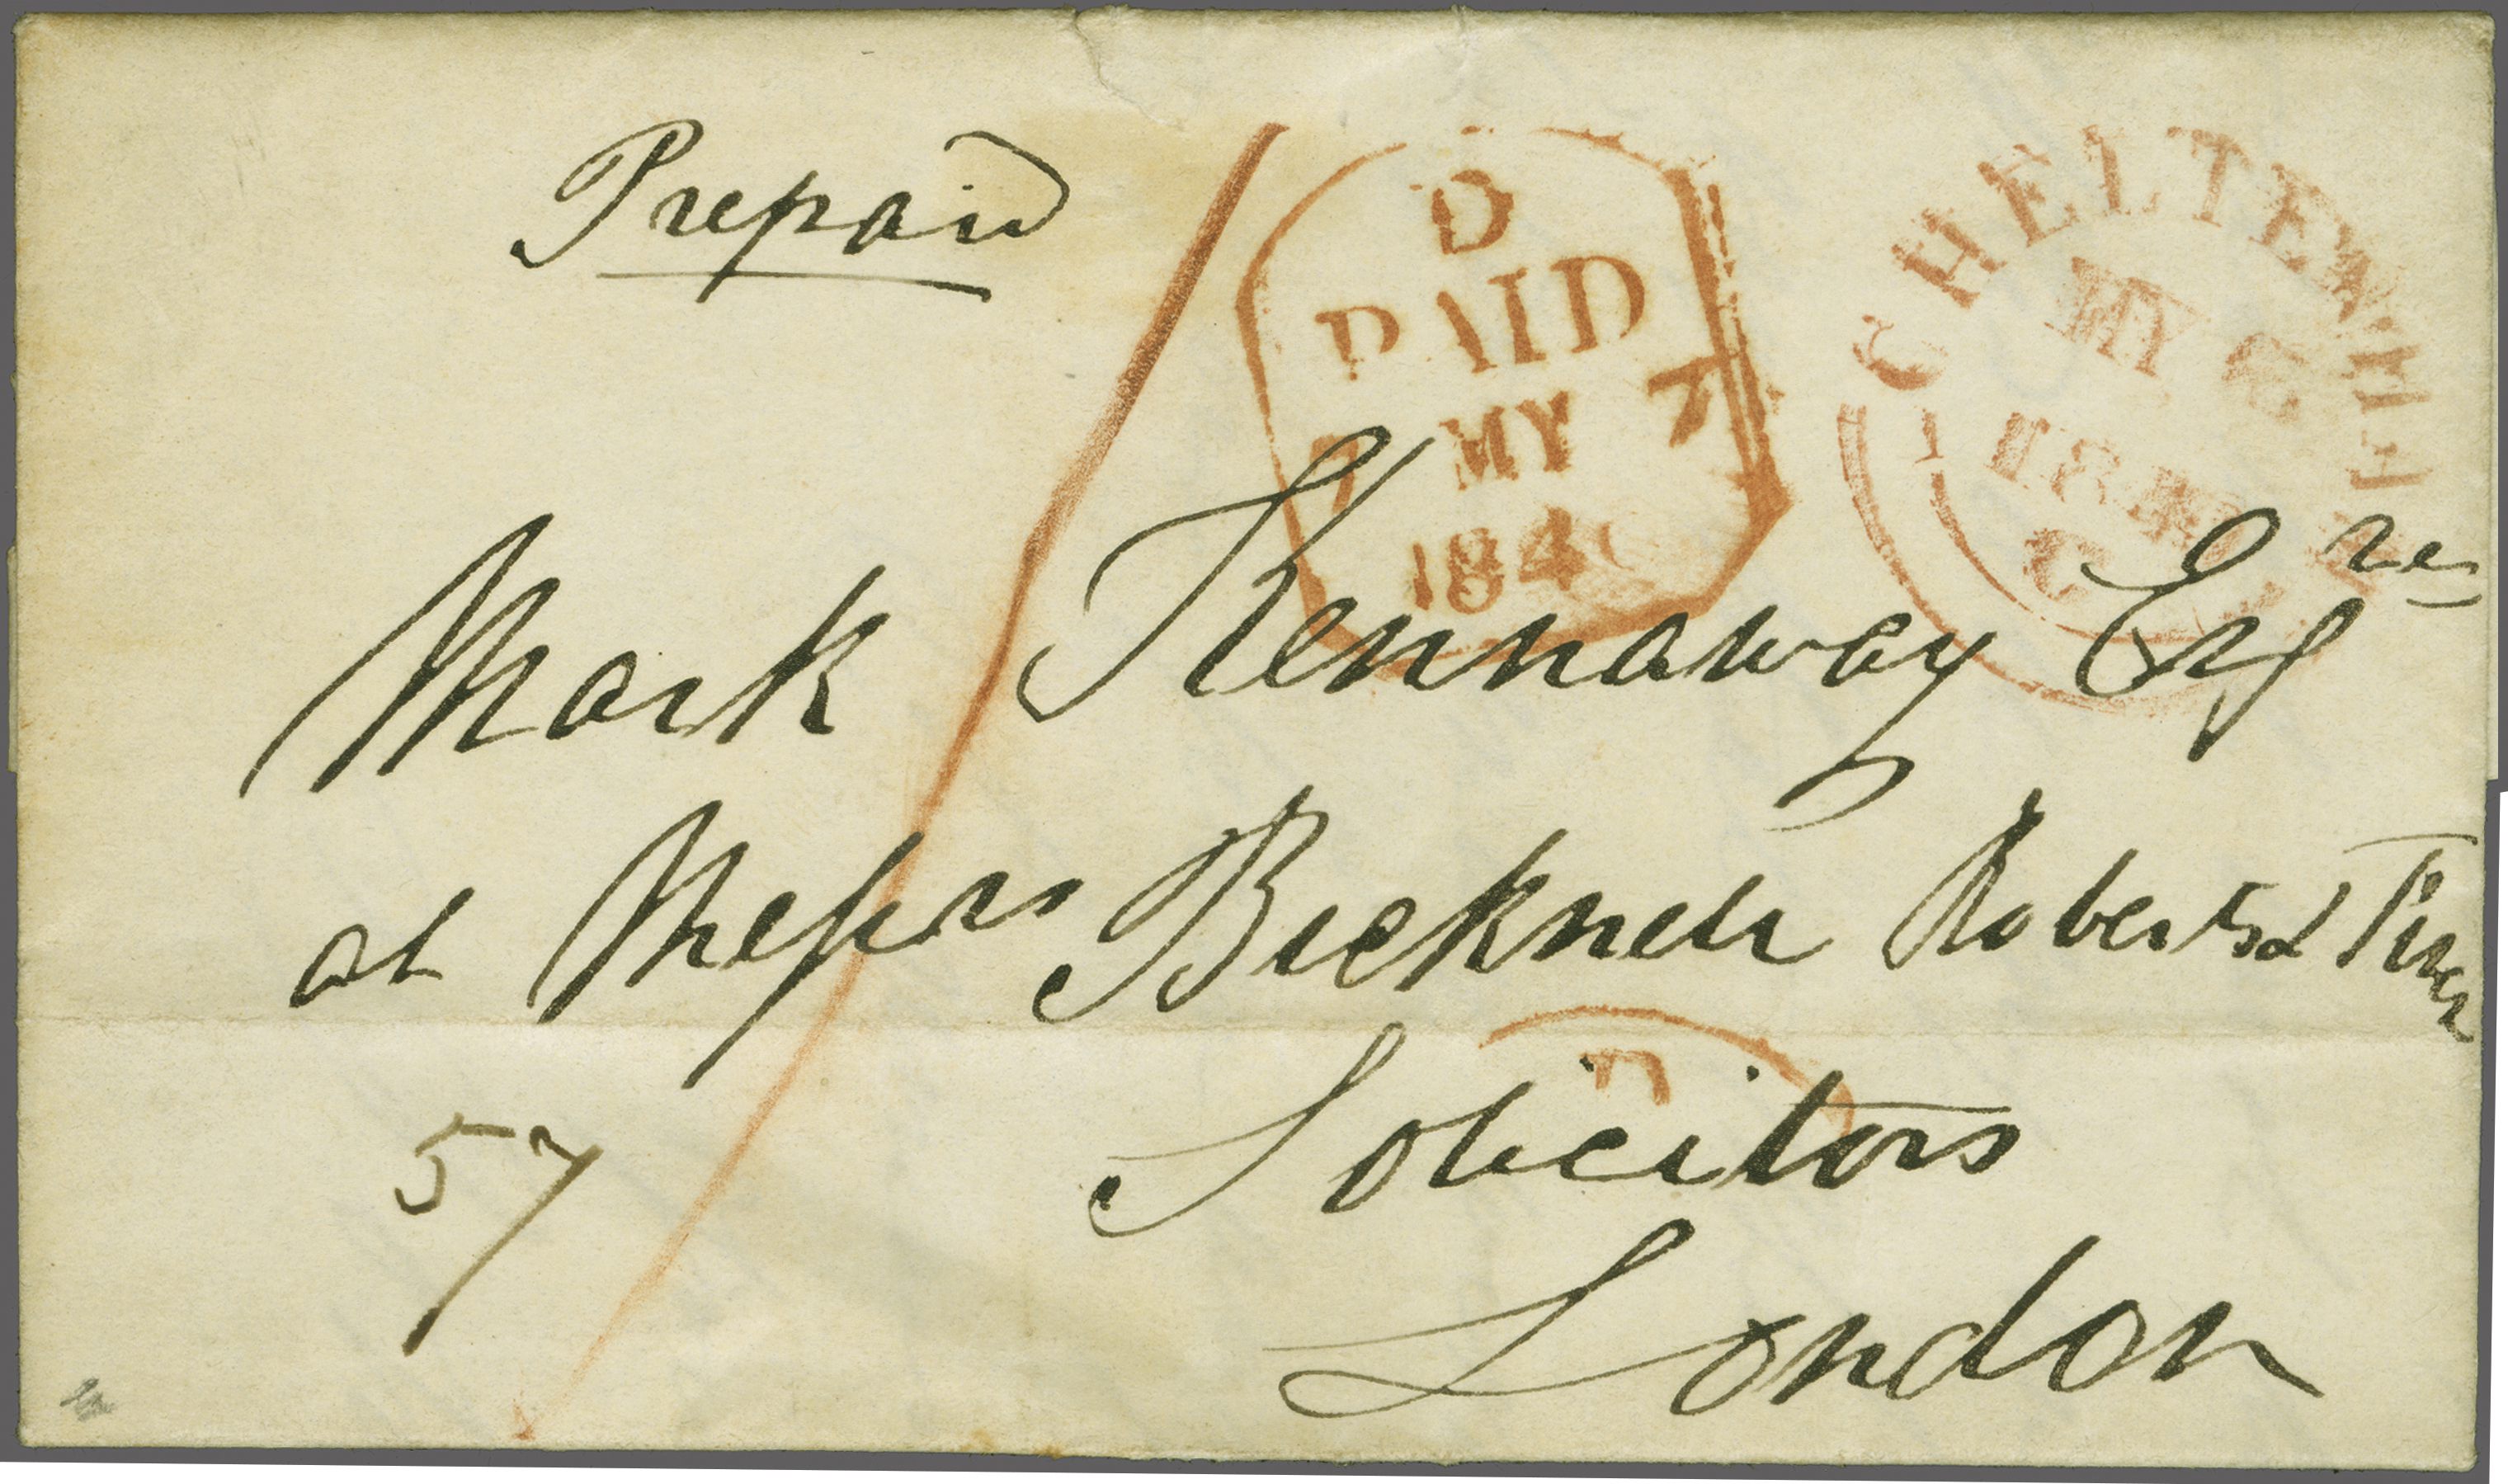 Prepaid
D
PAID
7 MY 7
1840
CHELTENHAM
MY 6
1840
C
Mark Kennaway Esqre
at Messrs Bicknell Roberts &
D
Solicitors
57
London